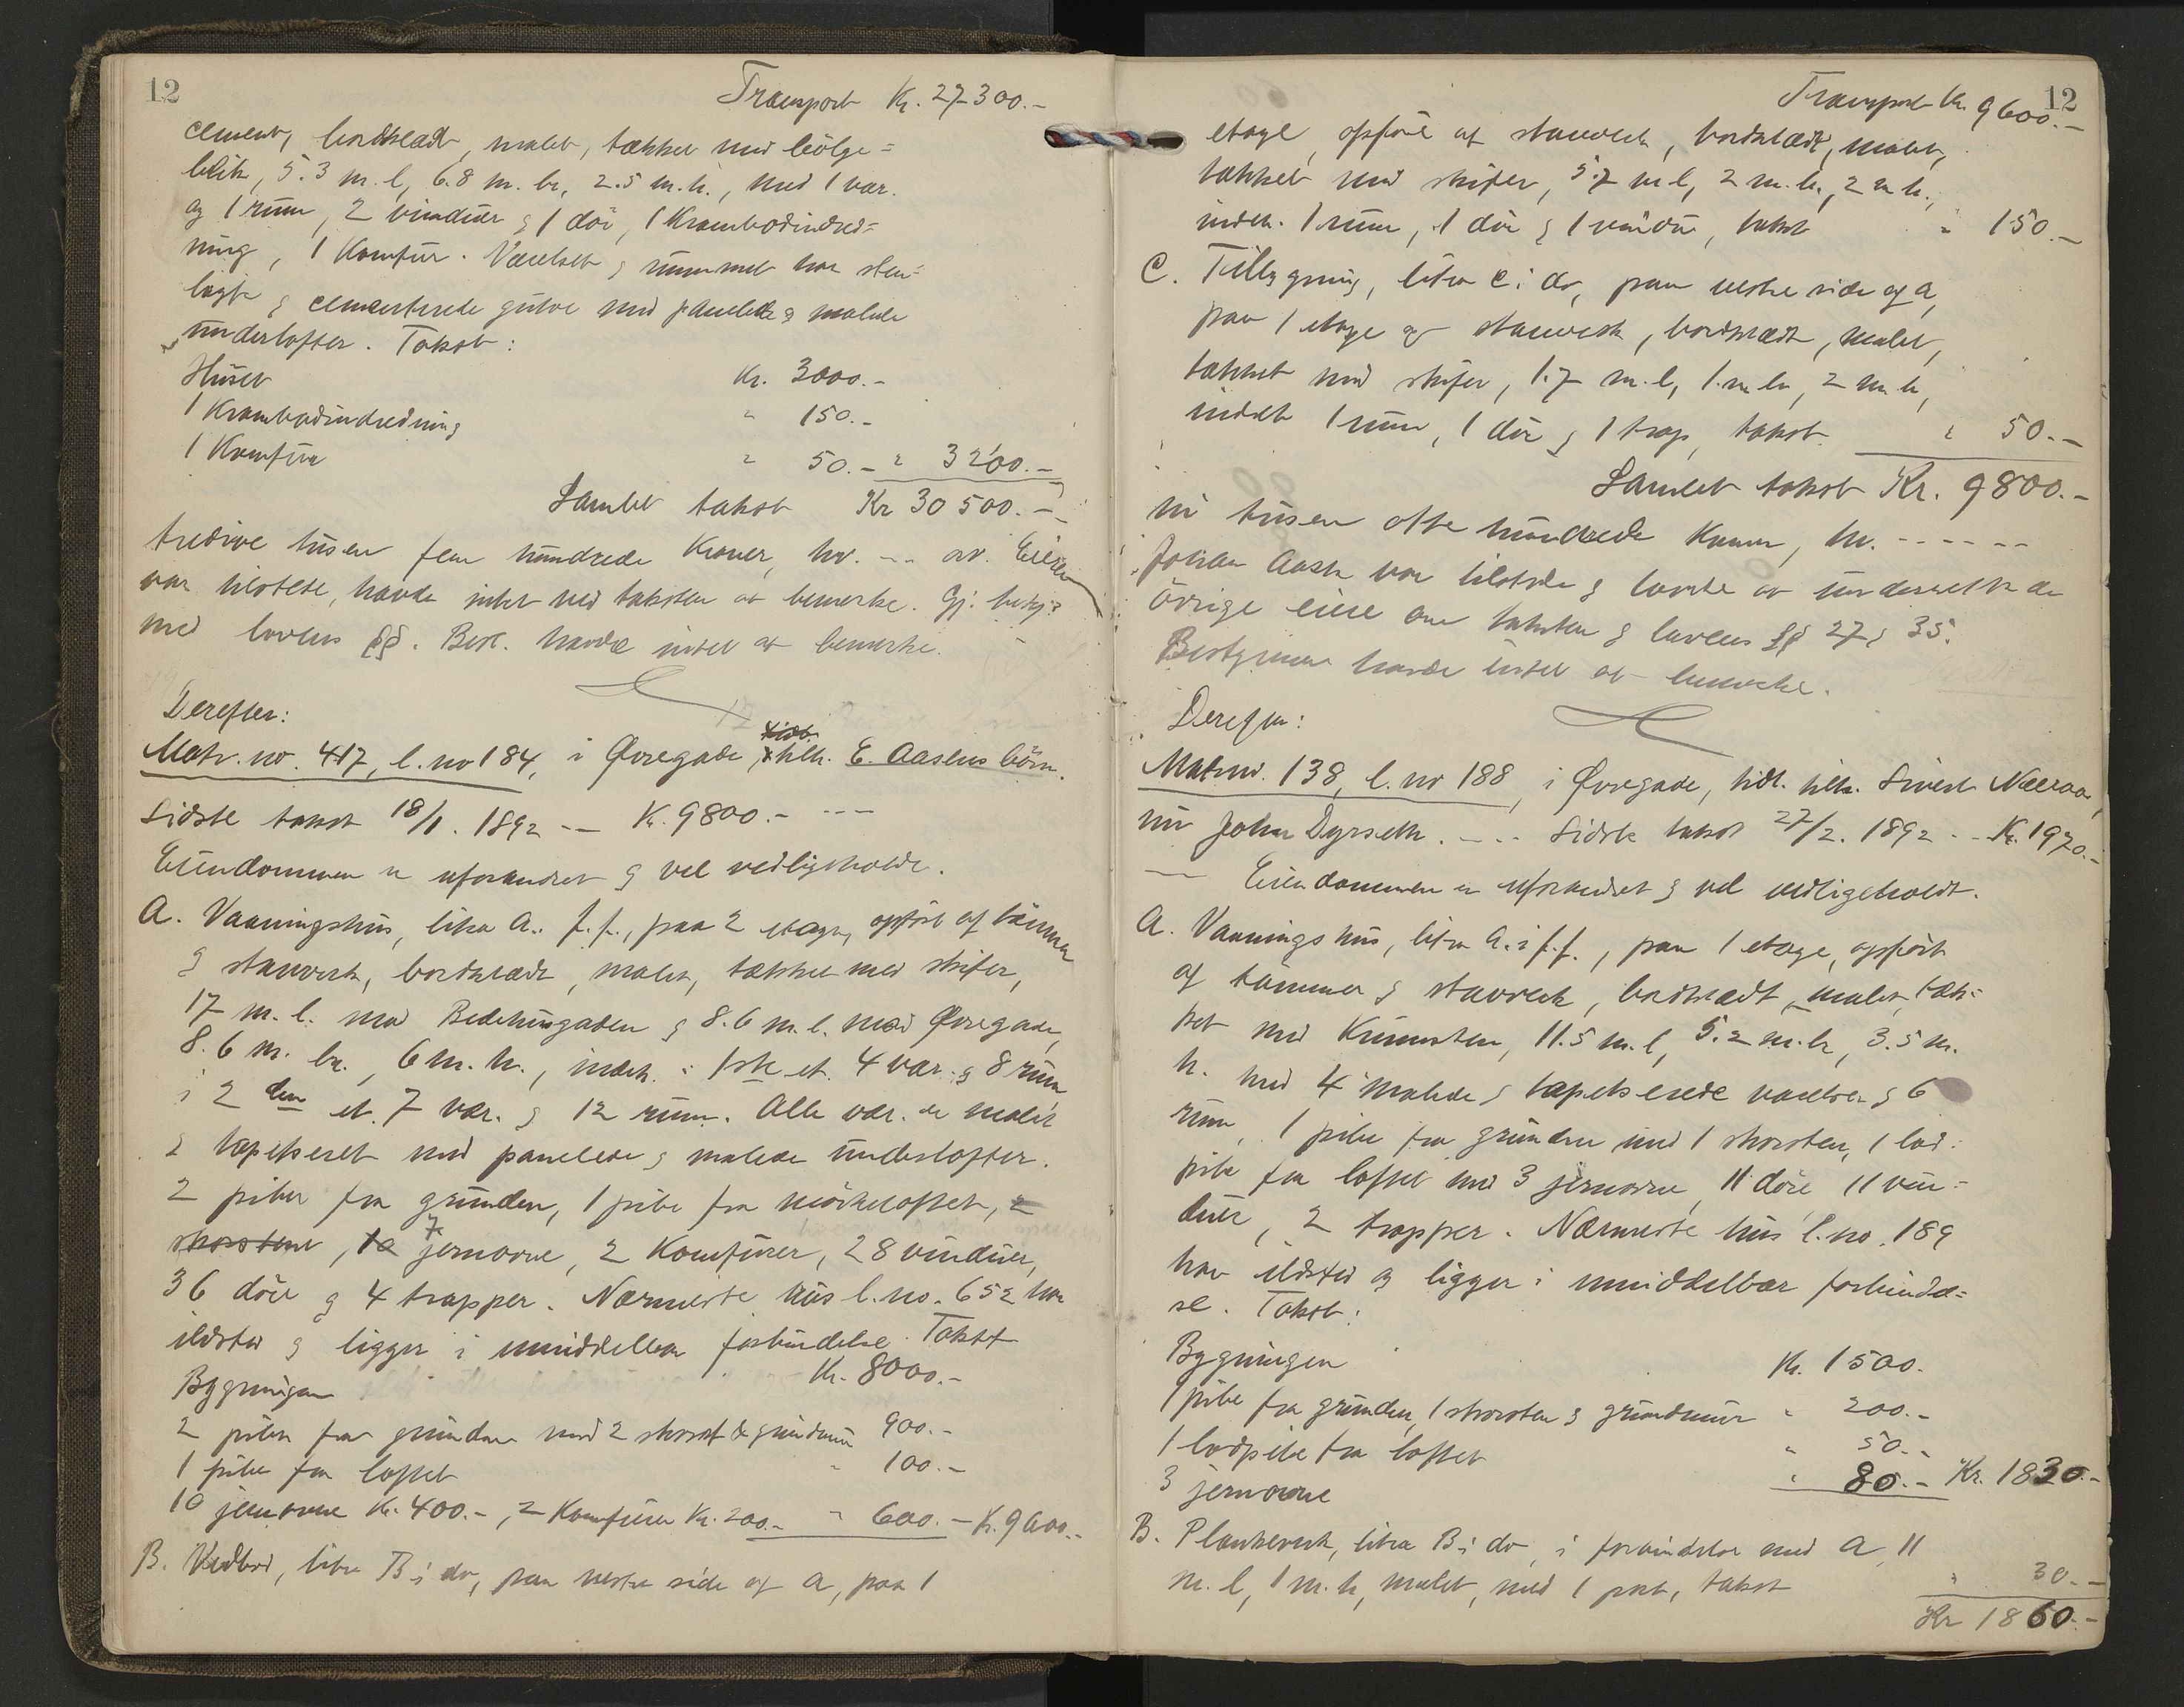 12
Transport Kr. 27300.-
cement, bordklædt, malet, tækket med bölge=
blik, 5.3 m.l, 6.8 m. br, 2.5 m.h., med 1 vær.
og 1 rum, 2 vinduer & 1 dör, 1 Krambodindred=
ning, 1 Komfur. Værelset & rummet har sten=
lagte & cementerede gulve med panelede & malede
underlofter. Takst:
Huset Kr. 3000.-
1 Krambodindredning " 150.-
1 Komfur " 50.- " 3200.-
Samlet takst Kr 30500.-
tredive tusen fem hundrede Kroner, hv. --- av. Eieren
var tilstede, havde intet ved taksten at bemerke. Gj. bekj.
med lovens §§. Best. havde intet at bemerke.
Derefter:
Matr. no. 417, l. no 184, i Øvregade, tilh. E. Aasens börn.
Sidste takst 18/1. 1892 -- Kr. 9800.- ---
Eiendommen er uforandret & vel vedligeholdt.
A. Vaaningshus, litra A. i f.f., paa 2 etager, opfört af tömmer
& stavverk, bordklædt, malet, tækket med skifer,
17 m. l. mod Bedehusgaden & 8.6 m. l. mod Øvregade,
8.6 m. br., 6 m. h., indeh. i 1ste et. 4 vær. & 8 rum
i 2den et. 7 vær. & 12 rum. Alle vær. er malet
& tapetseret med panelede & malede underlofter.
2 piber fra grunden, 1 pibe fra mörkeloftet, 2
skorstene, 10 7 jernovne, 2 Komfurer, 28 vinduer,
36 döre & 4 trapper. Nærmeste hus l. no. 652 har
ildsted & ligger i umiddelbar forbindelse. Takst
Bygningen Kr. 8000.-
2 piber fra grunden med 2 skorst. & grundmur 900.-
1 pibe fra loftet " 100.-
10 jernovne Kr. 400.-, 2 Komfurer Kr. 200.- " 600.- Kr. 9600.-
B. Vedbod, litra B i do, paa vestre side af A, paa 1
12
Transport Kr. 9600.-
etage, opfört af stavverk, bordklædt, malet,
tækket med skifer, 5.7 m l, 2 m. br, 2 m h.,
indeh. 1 rum, 1 dör & 1 vindu, takst " 150.-
C. Tilbygning, litra C i do, paa vestre side af A,
paa 1 etage af stavverk, bordklædt, malet,
tækket med skifer, 1.7 m. l, 1. m br, 2 m h,
indeh 1 rum, 1 dör & 1 trap, takst. " 50.-
Samlet takst Kr. 9800.-
ni tusen otte hundrede Kroner, hv. -----
Johan Aasen var tilstede & lovede at underrette de
övrige eiere om taksten & lovens §§ 27 & 35.
Bestyreren havde intet at bemerke.
Derefter:
Matr no. 138, l. no 188, i Øvregade, tidl. tilh. Sivert Næraas,
nu Johan Dyrseth. --- Sidste takst 27/2. 1892 -- Kr. 1970.-
-- Eiendommen er uforandret & vel vedligeholdt.
A. Vaaningshus, litra A. i f.f., paa 1 etage, opfört
af tömmer & stavverk, bordklædt, malet, tæk=
ket med Krumsten, 11.5 m. l, 5.2 m. br, 3.5 m.
h. med 4 malede & tapetserede værelser & 6
rum, 1 pibe fra grunden med 1 skorsten, 1 lod=
pibe fra loftet med 3 jernovne, 11 döre, 11 vin=
duer, 2 trapper. Nærmeste hus l. no. 189
har ildsted og ligger i umiddelbar forbindel=
se. Takst:
Bygningen Kr. 1500.
1 pibe fra grunden, 1 skorsten & grundmur " 200.-
1 lodpibe fra loftet " 50.-
3 jernovne " 80.- Kr. 1830.-
B. Plankeverk, litra B i do, i forbindelse med A, 11
m. l, 1 m. h, malet, med 1 port, takst " 30.-
Kr 1860.-